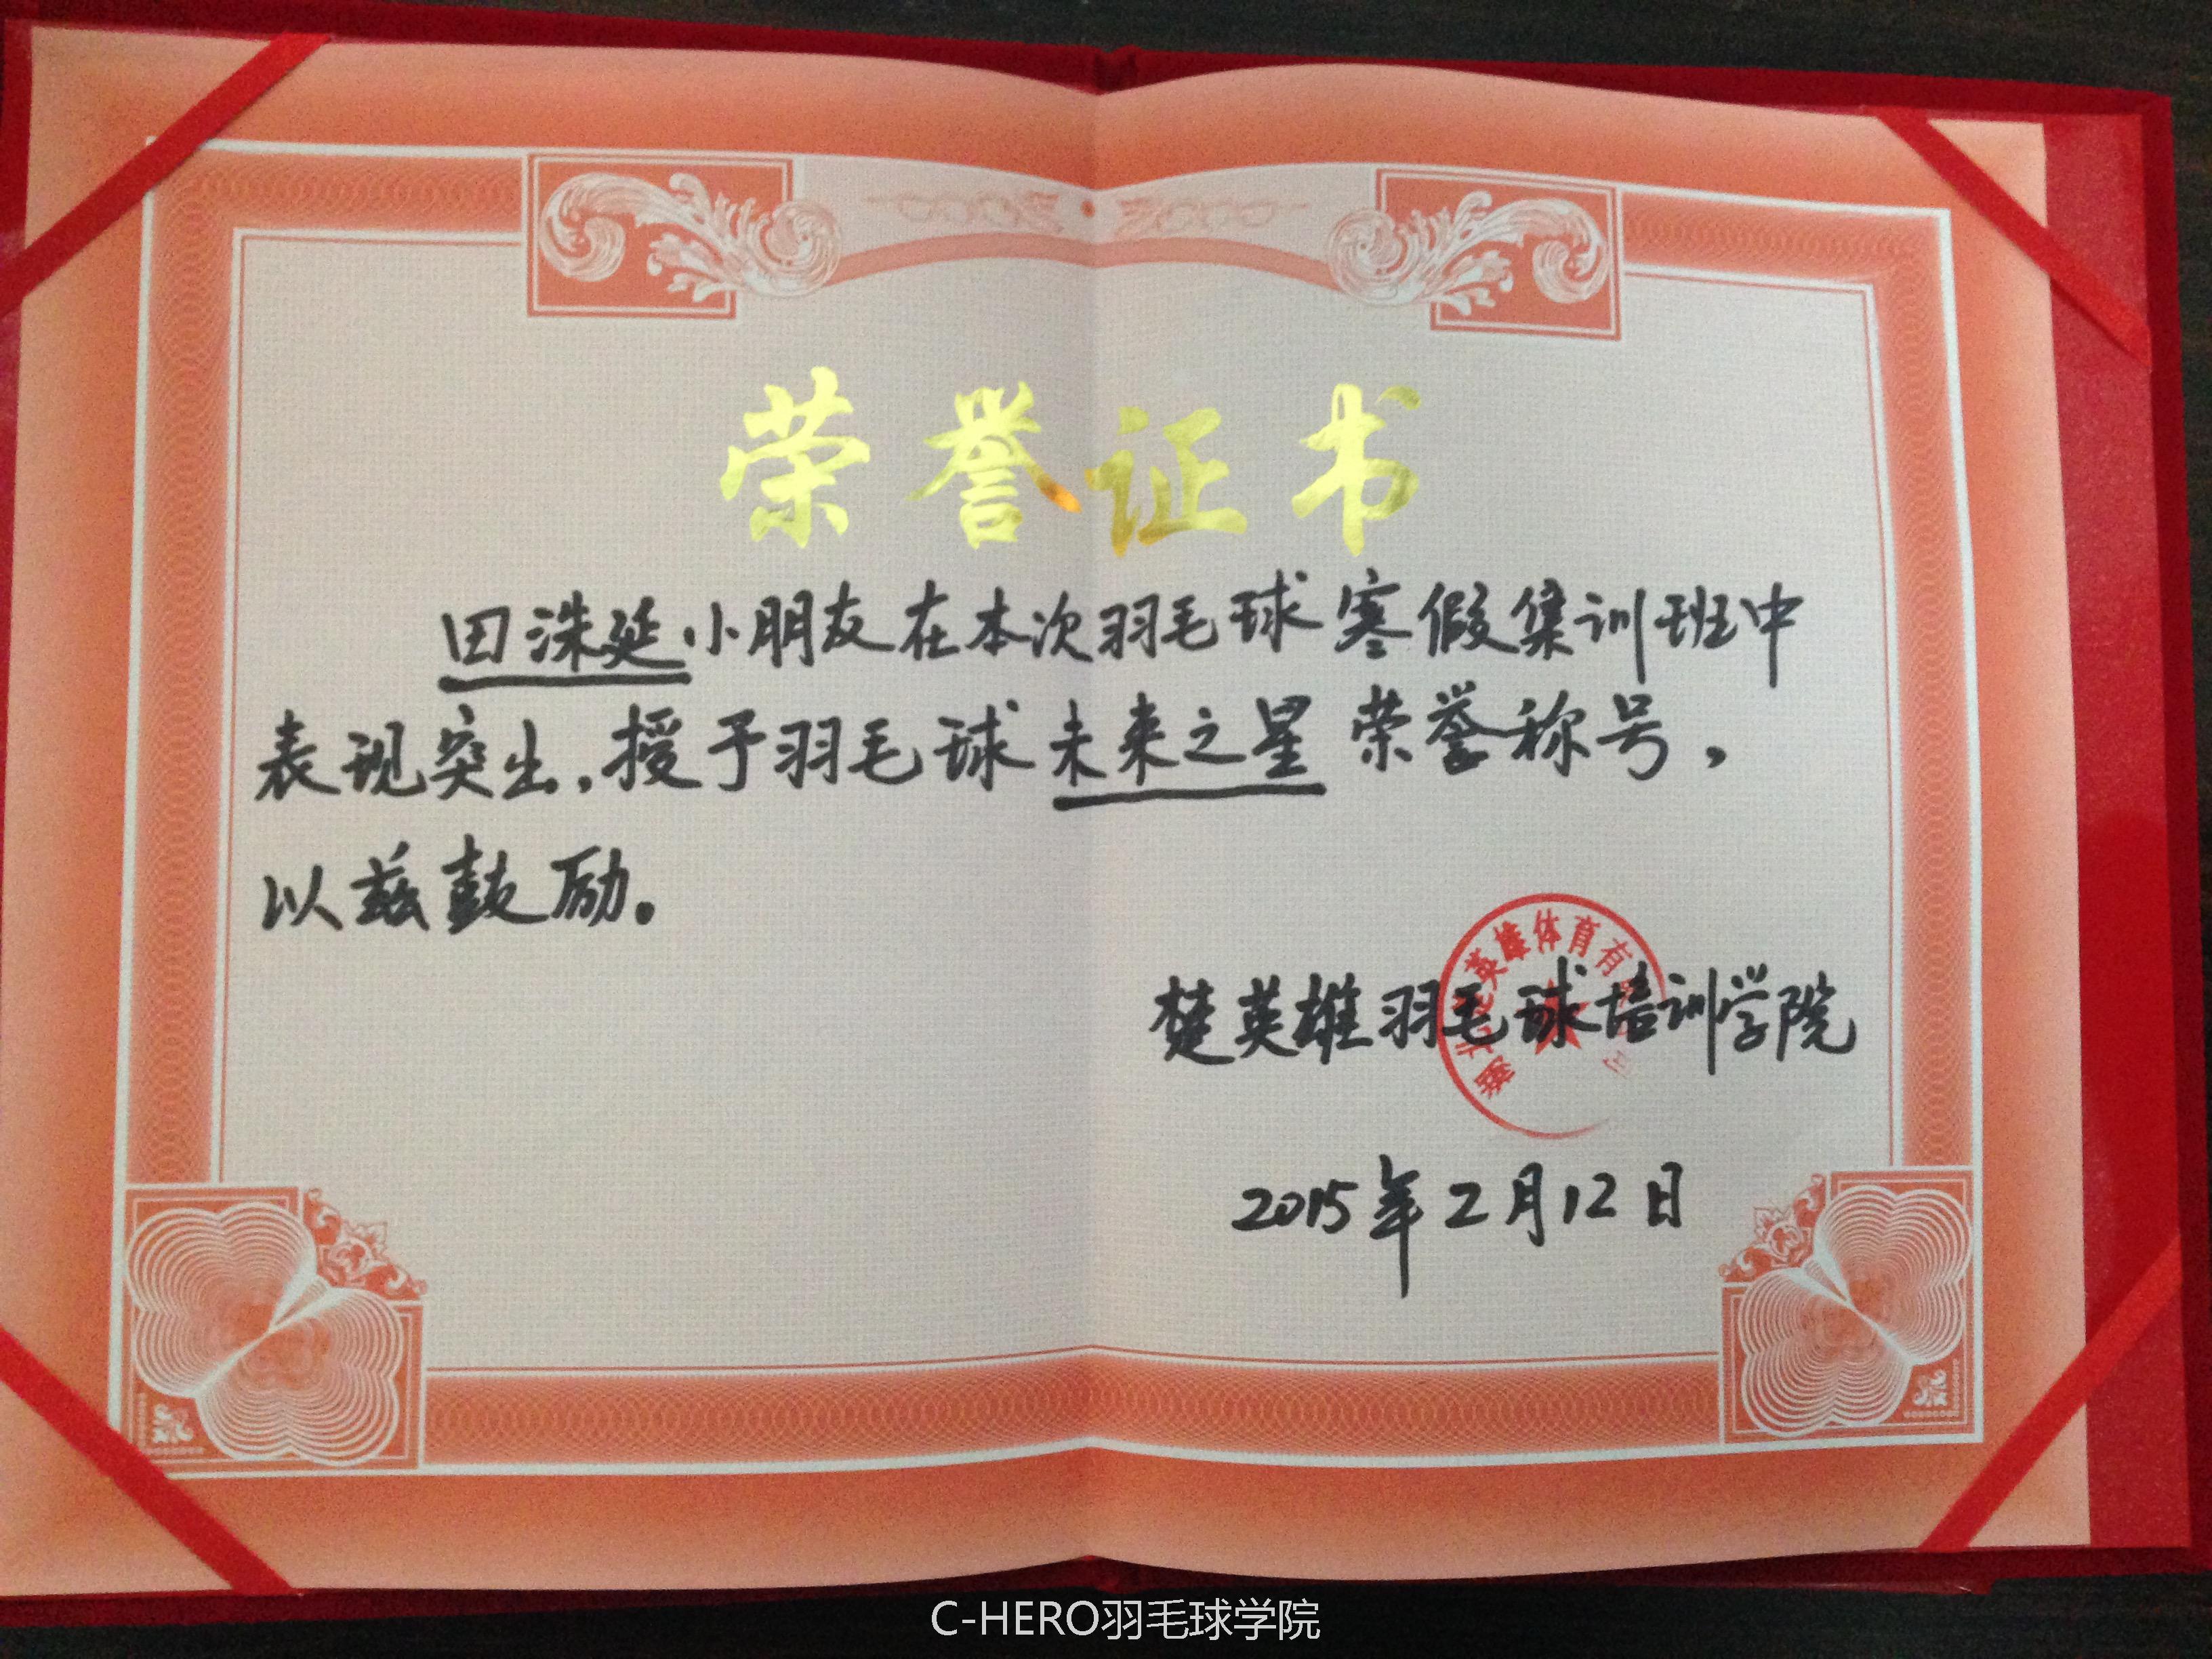 荣誉证书
田洙延小朋友在本次羽毛球寒假集训班中
表现突出,授予羽毛球未来之星荣誉称号,
以兹鼓励。
楚英雄羽毛球培训学院
湖北楚英雄体育有
司
2015年2月12日
C-HERO羽毛球学院